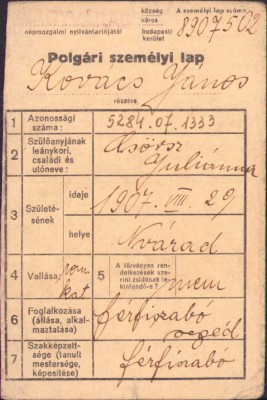 község
város
budapesti
kerület
A személyi lap száma
8907502
népmozgalmi nyilvántartójától
Polgári személyi lap
Kovács János
részére.
1 Azonossági száma: 5284.07.1333
2 Szülőanyjának leánykori, családi és utóneve: Csörsz Juliánna
3 Születésének ideje 1907. VIII. 29
helye Nvárad
4 Vallása: rom. kat
5 A törvényes rendelkezések szerint zsidónak tekintendő-e? nem
6 Foglalkozása (állása, alkalmaztatása) férfiszabó segéd
7 Szakképzettsége (tanult mestersége, képesítése) férfiszabó